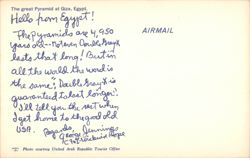 The great Pyramid at Giza, Egypt.
Hello from Egypt!
AIRMAIL
The Pyramids are 4,950
years old - Motever Double Gray X
beats that long! But in
all the world the word is
the same: "Double Gray X is
guaranteed to last longer".
I'll tell you the rest when I
get home to the good old
USA.
Regards,
George Jennings
Photo courtesy United Arab Republic Tourist Office